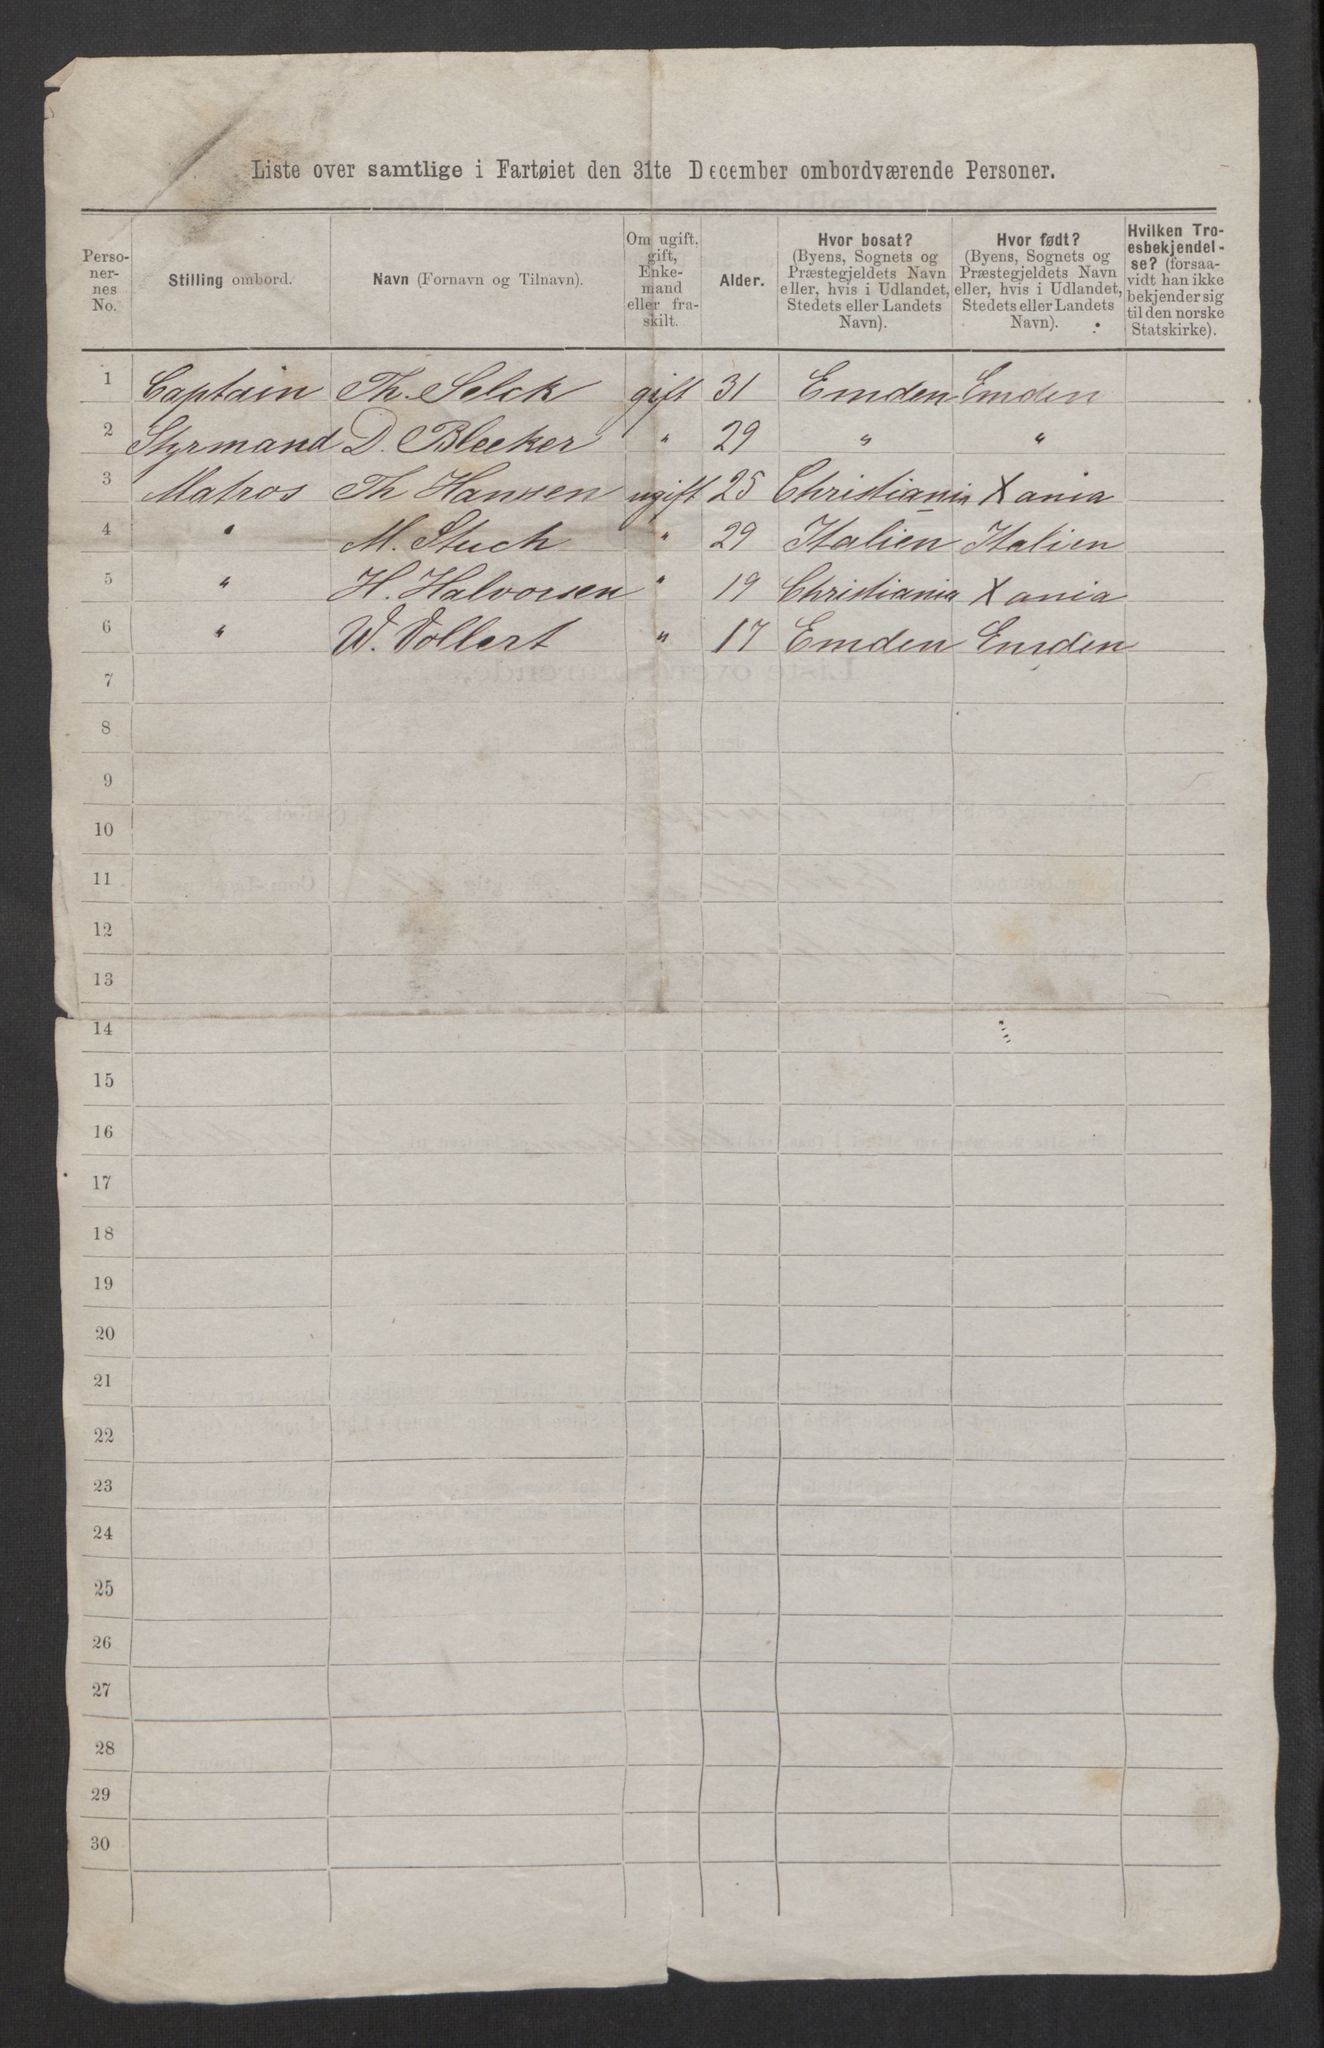 Liste over samtlige i Fartøiet den 31te December ombordværende Personer.
Perso-
ner-
nes
No.
Stilling ombord.
Navn (Fornavn og Tilnavn).
Om ugift,
gift,
Enke-
mand
eller fra-
skilt.
Alder.
Hvor bosat?
(Byens, Sognets og
Præstegjeldets Navn
eller, hvis i Udlandet,
Stedets eller Landets
Navn).
Hvor født?
(Byens, Sognets og
Præstegjeldets Navn
eller, hvis i Udlandet,
Stedets eller Landets
Navn).
Hvilken Tro-
esbekjendel-
se? (forsaa-
vidt han ikke
bekjender sig
til den norske
Statskirke).
1 Captain Th. Selck gift 31 Emden Emden
2 Styrmand D. Bleeker " 29 " "
3 Matros Th Hansen ugift 25 Christiania Xania
4 " M. Stuch " 29 Italien Italien
5 " H. Halvorsen " 19 Christiania Xania
6 " W. Vollert " 17 Emden Emden
7
8
9
10
11
12
13
14
15
16
17
18
19
20
21
22
23
24
25
26
27
28
29
30